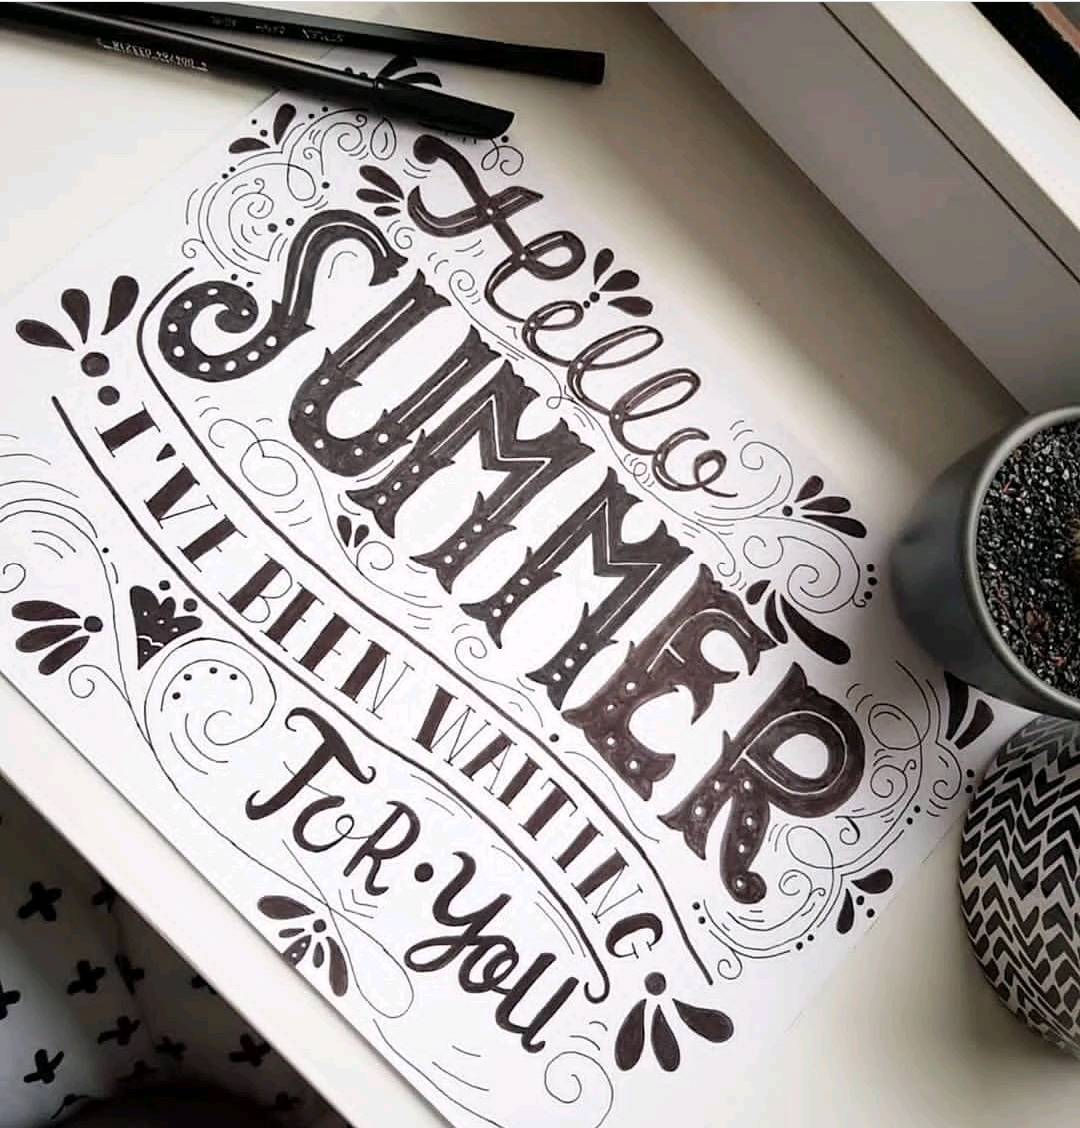 Hello
SUMMER
I'VE BEEN WAITING
FOR • YOU